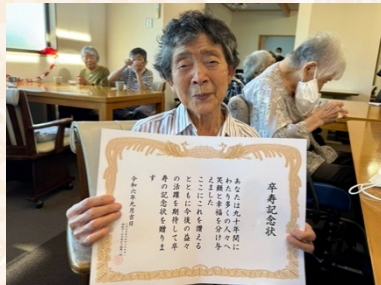 卒寿記念状
あなたは九十年間に
わたり多くの人々へ
笑顔と幸福を分け与
えました
ここにこれを讃える
とともに今後の益々
の活躍を期待して卒
寿の記念状を贈りま
す
令和六年元吉日